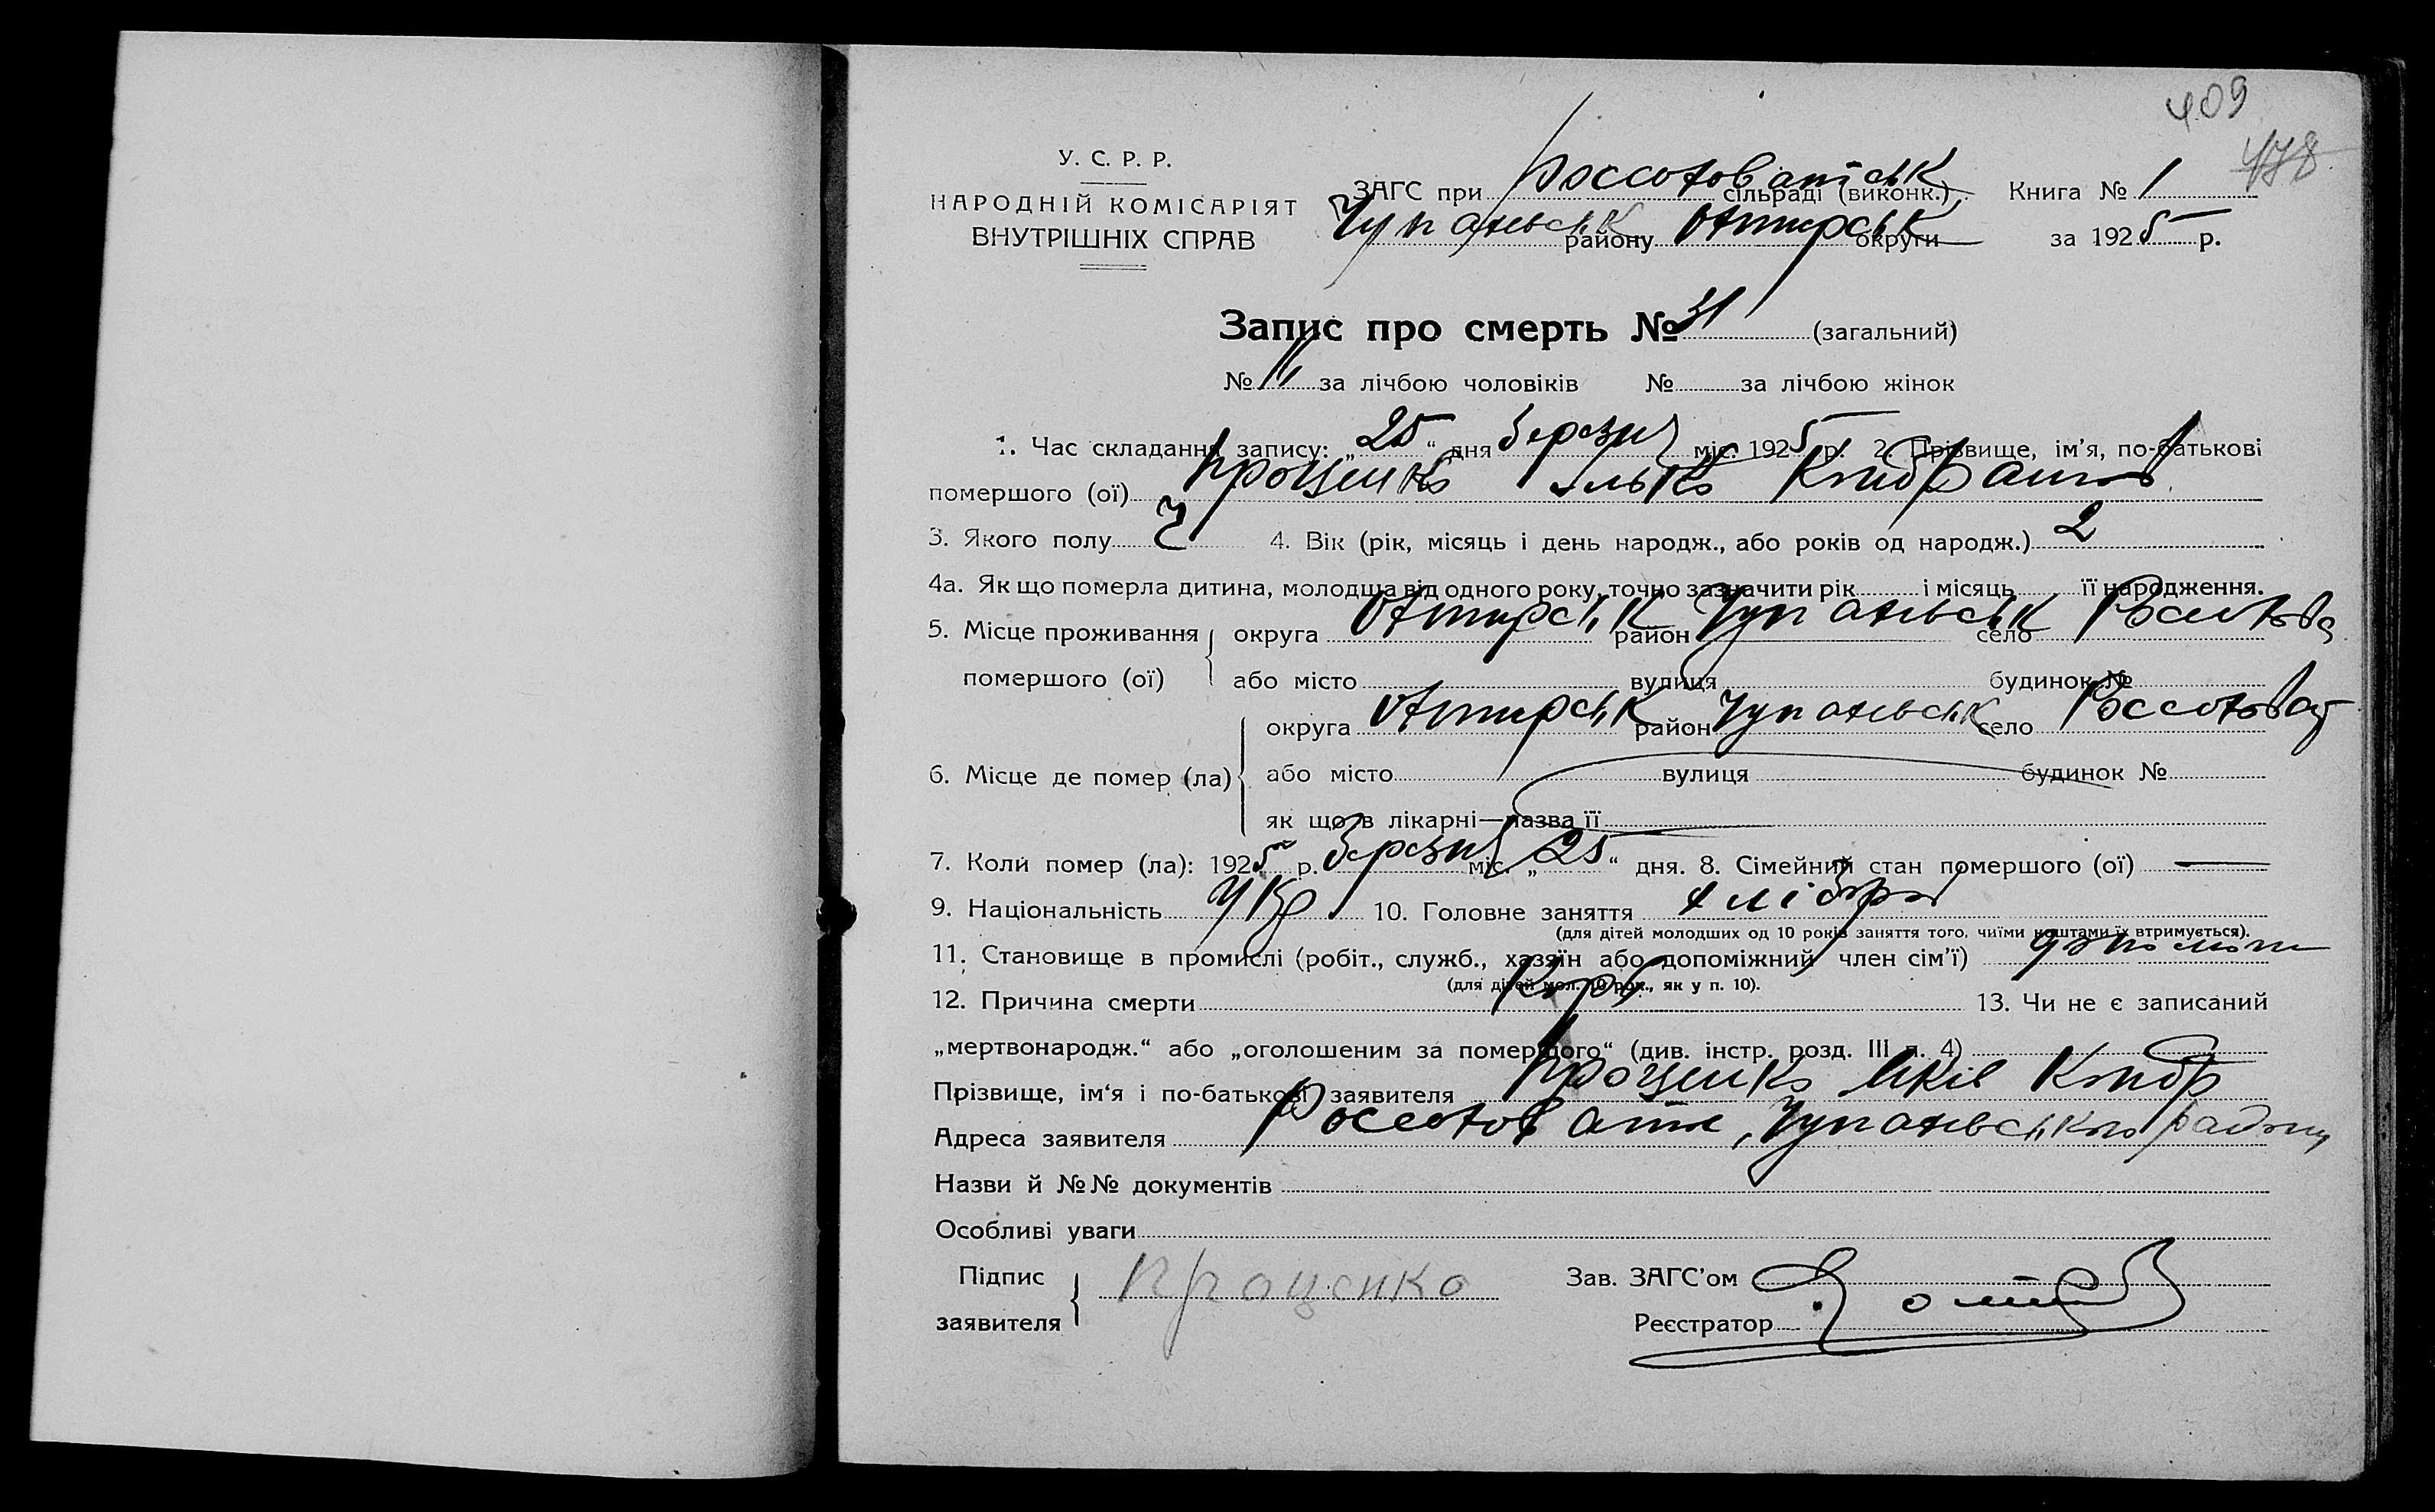 409
478
У. С. Р. Р.
НАРОДНІЙ КОМІСАРІЯТ
ВНУТРІШНІХ СПРАВ
ЗАГС при Россоховатськ сільраді (виконк.) Книга № 1
Чупахівськ району Охтирськ округи за 1925 р.
Запис про смерть № 31 (загальний)
№ 11 за лічбою чоловіків № за лічбою жінок
1. Час складання запису: „25“ дня березня міс. 1925 р. 2. Прізвище, ім'я, по-батькові
помершого (ої) Проценко Ілько Кондратов
3. Якого полу Ч 4. Вік (рік, місяць і день народж., або років од народж.) 2
4а. Як що померла дитина, молодша від одного року, точно зазначити рік і місяць її народження.
5. Місце проживання округа Охтирськ район Чупахівськ село
помершого (ої) або місто вулиця будинок №
округа Охтирськ район Чупахівськ село Россоховат
6. Місце де помер (ла) або місто вулиця будинок №
як що в лікарні—назва її
7. Коли помер (ла): 1925 р. березня міс. „25“ дня. 8. Сімейний стан помершого (ої) —
9. Національність Укр 10. Головне заняття хлібороб
(для дітей молодших од 10 років заняття того, чиїми коштами їх втримується).
11. Становище в промислі (робіт., служб., хазяїн або допоміжний член сім'ї)
(для дітей мол. 10 рок., як у п. 10).
12. Причина смерти Кор 13. Чи не є записаний
„мертвонародж.“ або „оголошеним за померлого“ (див. інстр. розд. III п. 4)
Прізвище, ім'я і по-батькові заявителя Проценко Яків Кондр
Адреса заявителя Россоховате, Чупахівського району
Назви й №№ документів
Особливі уваги
Підпис заявителя Проценко Зав. ЗАГС'ом
Реєстратор